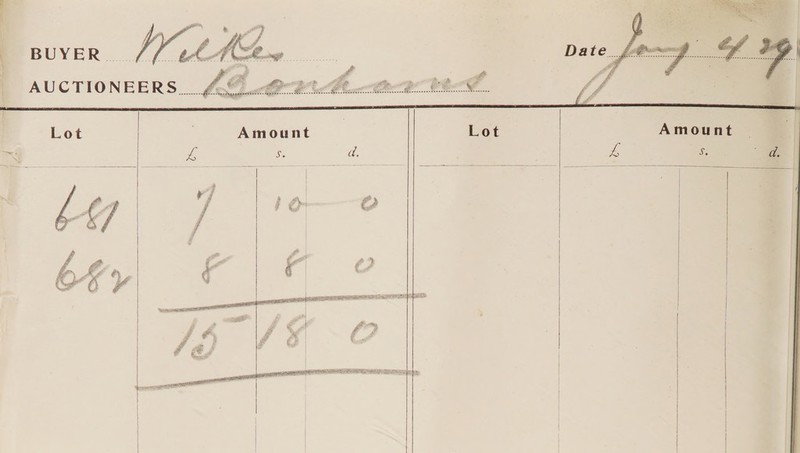 BUYER Wilkes Date Jany 4 29
AUCTIONEERS Bonhams
Lot Amount Lot Amount
£ s. d. £ s. d.
681 7 10 0
682 8 8 0
15 18 0